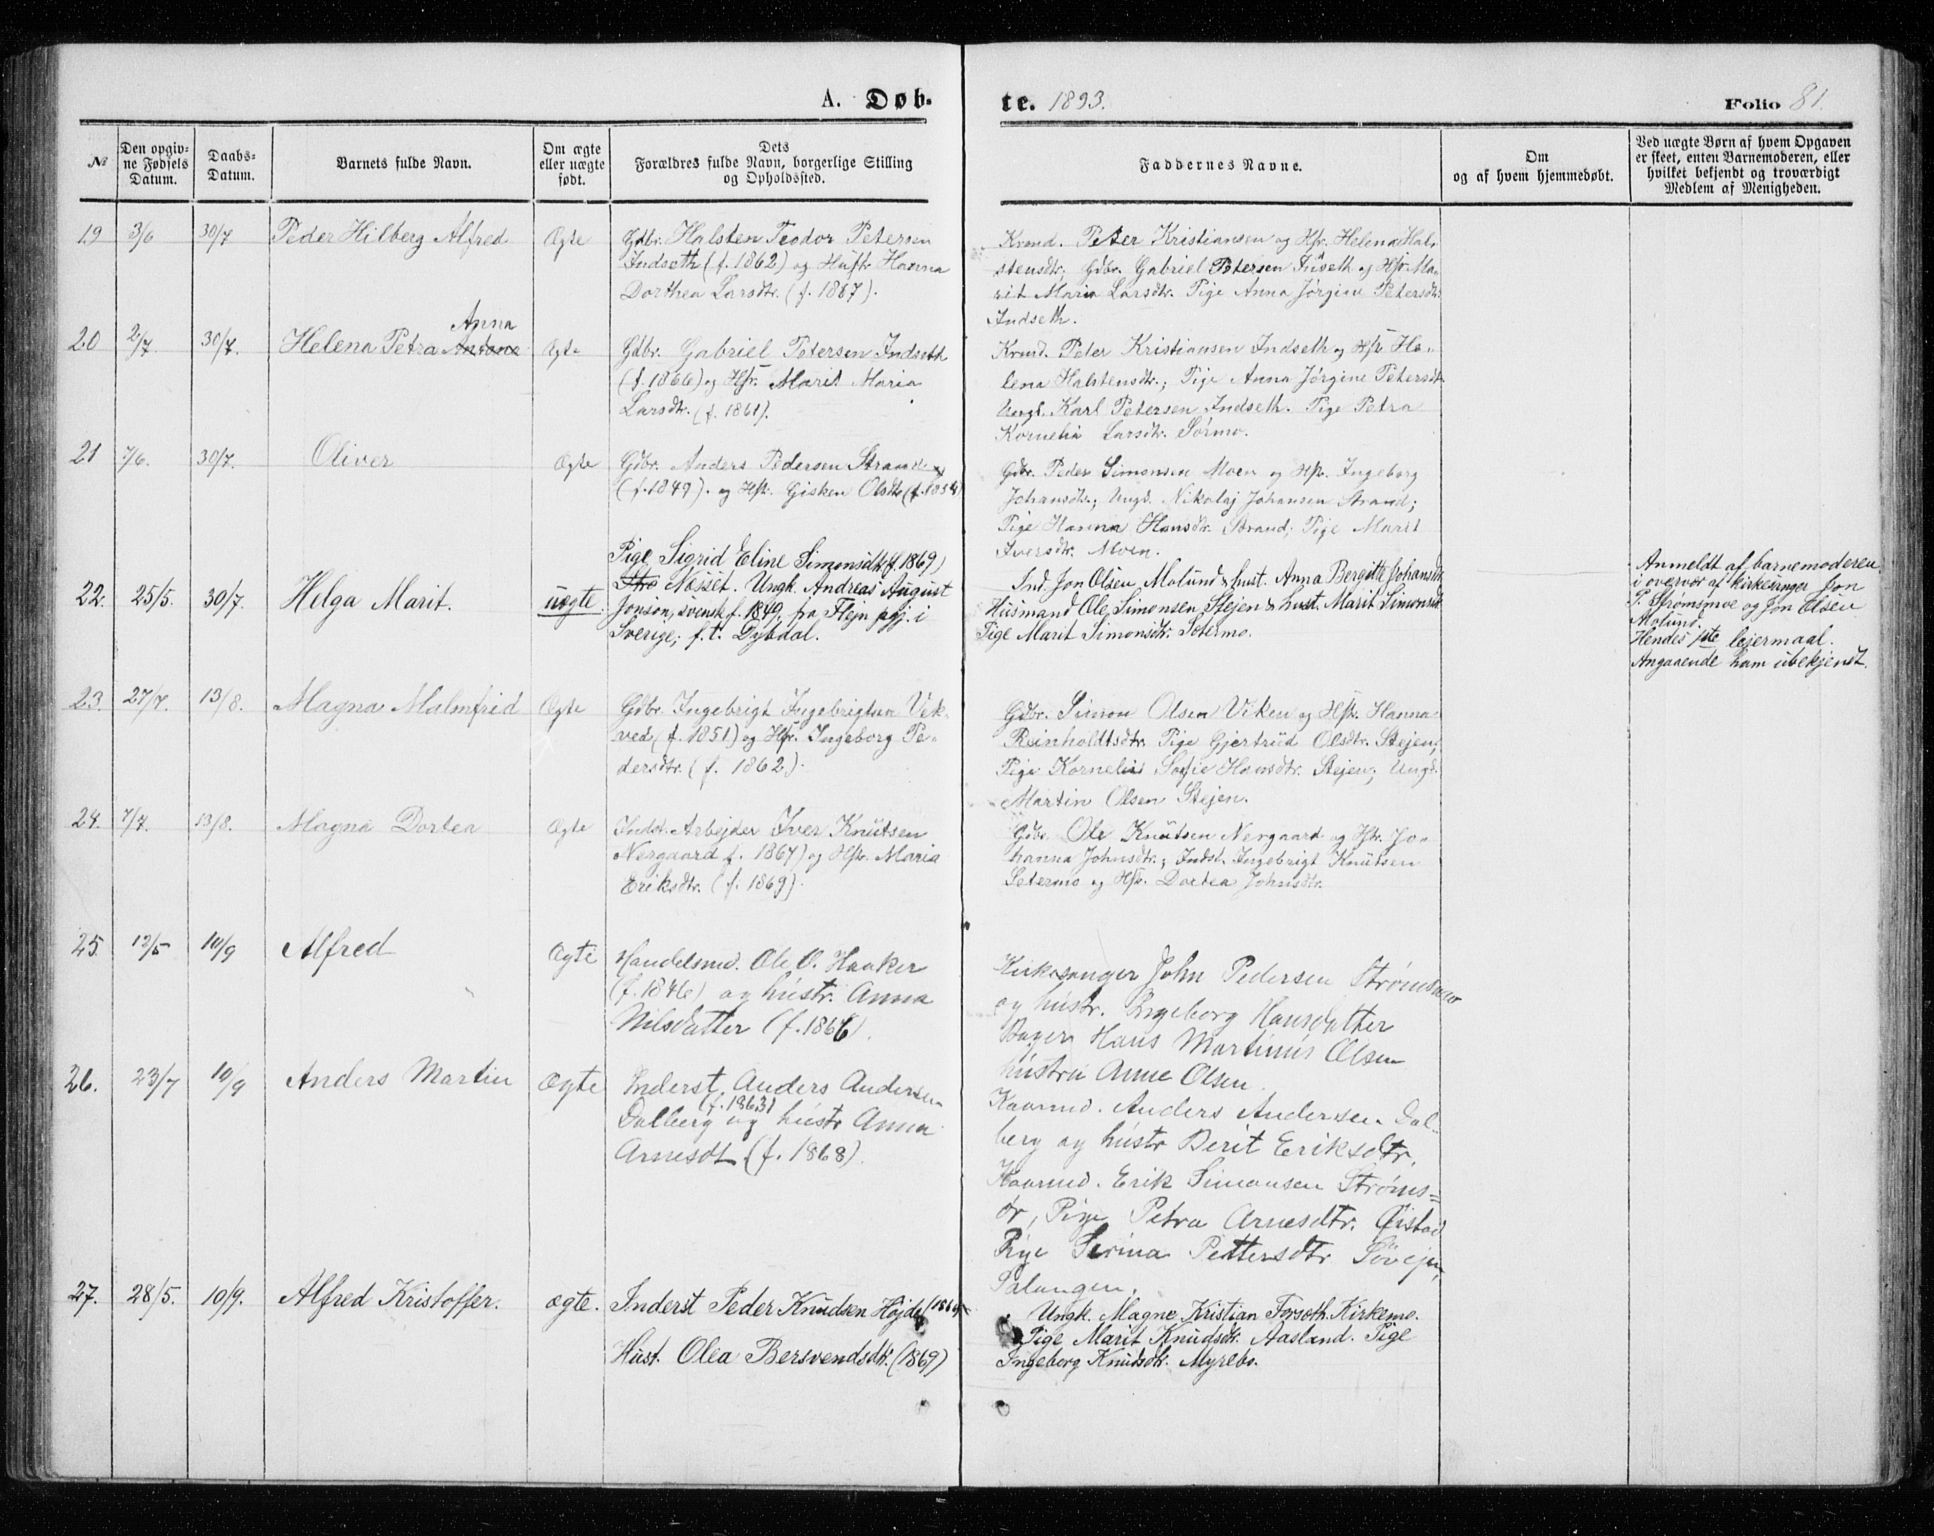 A. Døb-
te. 1893.
Folio 81.
№
Den opgiv-
ne Fødsels
Datum.
Daabs-
Datum.
Barnets fulde Navn.
Om ægte
eller uægte
født.
Dets
Forældres fulde Navn, borgerlige Stilling
og Opholdssted.
Faddernes Navne.
Om
og af hvem hjemmedøbt.
Ved uægte Børn af hvem Opgaven
er skeet, enten Barnemoderen, eller
hvilket bekjendt og troværdigt
Medlem af Menigheden.
19 3/6 30/7 Peder Hilberg Alfred Ægte
Gdbr. Halsten Teodor Petersen
Indseth (f. 1862) og Hustr Hanna
Dorthea Larsdtr. (f. 1867).
Peter Kristiansen og Hfr. Helena Hal-
stensdtr. Gdbr. Gabriel Petersen Inseth og Hfr. Ma-
rit Maria Larsdtr. Pige Anna Jørgine Petersdtr.
Indseth.
20 2/7 30/7 Helena Petra Anna Ægte
Gdbr. Gabriel Petersen Indseth
(f. 1866) og Hfr. Marit Maria
Larsdtr. (f. 1861).
Peter Kristiansen Indseth og Hfr. He-
lena Halstensdtr.; Pige Anna Jørgine Petersdt.
Ungk. Karl Petersen Indseth. Pige Petra
Kornelia Larsdtr. Sørmo.
21 7/6. 30/7. Oliver Ægte
Gdbr. Anders Pedersen Strand
(f. 1849). og Hfr. Gisken Olsdtr (f. 1854)
Gdbr. Peder Simonsen Moen og Hfr. Ingeborg
Johansdtr.; Ungd. Nikolaj Johansen Strand;
Pige Hanna Hansdtr. Strand; Pige Marit
Iversdtr. Moen.
22. 25/5. 30/7. Helga Marit. uægte.
Pige Sigrid Eline Simonsdtr (f. 1869)
Nesset. Ungk. Andreas August
Jonson, svensk f. 1849, fra Flejn pgj. i
Sverige; f. t. Dybdal.
Ind. Jon Olsen Molund & hust. Anna Bergitte Johansdr
Husmand Ole Simonsen Stejen & hust. Marit Simonsd.
Pige Marit Simonsdtr. Setermo.
Anmeldt af barnemoderen
i overvær af kirkesanger Jon
P. Strømsmoe og Jon Olsen
Molund.
Hendes 1ste lejermaal.
Angaaende ham ubekjendt.
23. 27/7. 13/8. Magna Malmfrid Ægte
Gdbr. Ingebrigt Ingebrigtsen Vek-
ved (f. 1851) og Hfr. Ingeborg Pe-
dersdtr. (f. 1862).
Gdbr. Simon Olsen Viken og Hfr. Hanna
Reinholdtsdtr. Pige Gjertrud Olsdtr. Stejen;
Pige Kornelia Sofie Hansdtr. Stejen; Ungd.
Martin Olsen Stejen.
24. 7/7. 13/8. Magna Dortea Ægte
Indst. Arbejder Iver Knutsen
Nergaard f. 1867) og Hfr. Maria
Eriksdtr. (f. 1869).
Gdbr. Ole Knutsen Nergaard og Hfr. Jo-
hanna Johnsdtr.; Indst. Ingebrigt Knutsen
Setermo og Hfr. Dortea Johnsdtr.
25. 12/5 10/9 Alfred Ægte
Handelsmd. Ole O. Haaker
(f. 1846) og hustr. Anna
Nilsdatter (f. 1866).
Kirkesanger John Pedersen Strømsmo
og hustr. Ingeborg Hansdatter
Hans Martinus Olsen
hustru Anne Olsen.
26. 23/7 10/9 Anders Martin Ægte
Inderst Anders Andersen
(f. 1863)
Dalberg og hustr Anna
Arnesdt (f. 1868).
Kaarmd. Anders Andersen Dal-
berg og hustr Berit Eriksdtr.
Kaarmd. Erik Simonsen Strøms-
ør, Pige Petra Arnesdtr. Øistad
Pige Serina Pettersdtr
Salangen.
27. 28/5. 10/9. Alfred Kristoffer. ægte.
Inderst Peder Knudsen
Hust. Olea Bersvendsdtr. (1869)
Ungk. Magne Kristian Forseth Kirkemo.
Pige Marit Knudsdtr. Aasland. Pige
Ingeborg Knudsdtr. Myrebo.